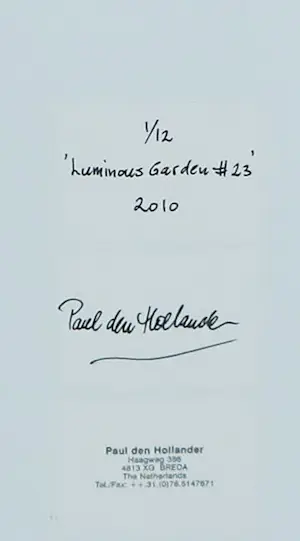 1/12
'Luminous Garden #23'
2010
Paul den Hollander
Paul den Hollander
Haagweg 356
4813 XG BREDA
The Netherlands
Tel./Fax: ++31 (0)76.5147671